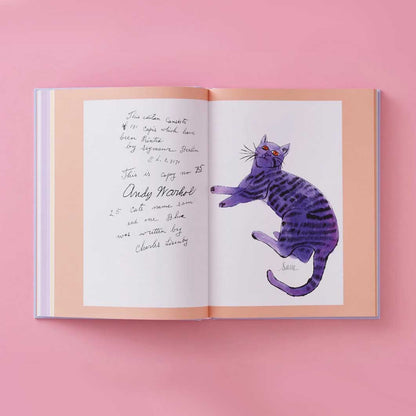 This edition consists
of 190 copies which have
been Printed
by Seymour Berlin
This is copy no 75
Andy Warhol
25 Cats name sam
and one Blue
was written by
Charles Lisanby
Sam